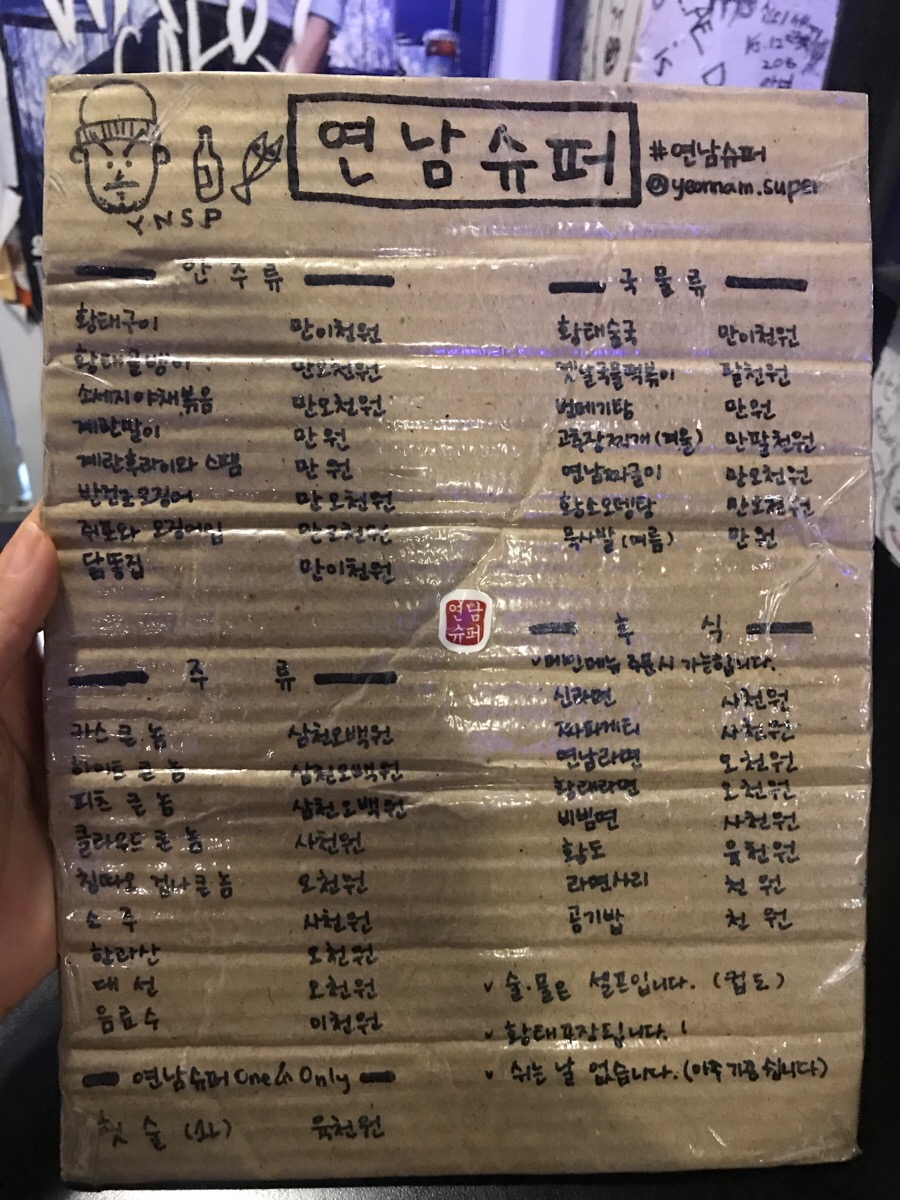 연남슈퍼
#연남슈퍼
@yeonnam.super
YNSP
안주류
황태구이 만이천원
황태골뱅이 만오천원
소세지야채볶음 만오천원
계란말이 만원
계란후라이와 스팸 만원
반건조오징어 만오천원
쥐포와 오징어입 만오천원
닭똥집 만이천원
주류
카스 큰 놈 삼천오백원
하이트 큰 놈 삼천오백원
피츠 큰 놈 삼천오백원
클라우드 큰 놈 사천원
칭따오 겁나 큰 놈 오천원
소주 사천원
한라산 오천원
대선 오천원
음료수 이천원
연남슈퍼 One & Only
육천원
국물류
황태술국 만이천원
옛날국물떡볶이 팔천원
번데기탕 만원
고추장찌개 (겨울) 만팔천원
연남짜글이 만오천원
황소오뎅탕 만오천원
묵사발 (여름) 만원
연남
슈퍼
후식
✓메인메뉴 주문시 가능합니다.
신라면 사천원
짜파게티 사천원
연남라면 오천원
황태라면 오천원
비빔면 사천원
황도 육천원
라면사리 천원
공기밥 천원
✓ 술·물은 셀프입니다. (컵도)
✓ 황태포장됩니다.!
✓ 쉬는 날 없습니다. (아주 가끔 쉽니다)